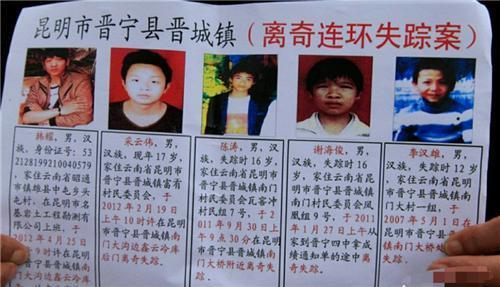 昆明市晋宁县晋城镇（离奇连环失踪案）
韩耀，男，汉
族，身份证号：53
2128199210040579
家住云南省昭通
市镇雄县中屯乡头
屯村，在昆明市名
基岩土工程勘测有
限公司上班，于
2012年4月25日
南门大沟边鑫云冷库
后门离奇失踪。
采云伟，男，汉
族，现年17岁，
家住云南省昆明
市晋宁县晋城富有
村民委员会，于
2012年2月19日
上午10时许在昆
明市晋宁县晋城镇南
陈涛，男，汉
族，失踪时16岁
家住云南省昆明
市晋宁县晋城镇南门
村民委员会瓦窑冲
村民组7号，于2
011年9月30日上
午9点30分在昆明
市晋宁县晋城镇南
门大桥处附近离奇失踪。
谢海俊，男，
汉族，失踪时16
岁，家住云南省昆明
市晋宁县晋城镇南
村民委员会
凤凰组9号，于2011
年1月27日上午从
家到晋宁四中拿成
绩通知单的途中
离奇失踪。
李汉雄，男，
汉族，失踪时12岁
家住云南省昆明
市晋宁县晋城镇南
门大村一组，于
2007年5月1日在
昆明市晋宁县晋城镇南
门大桥处
离奇失踪